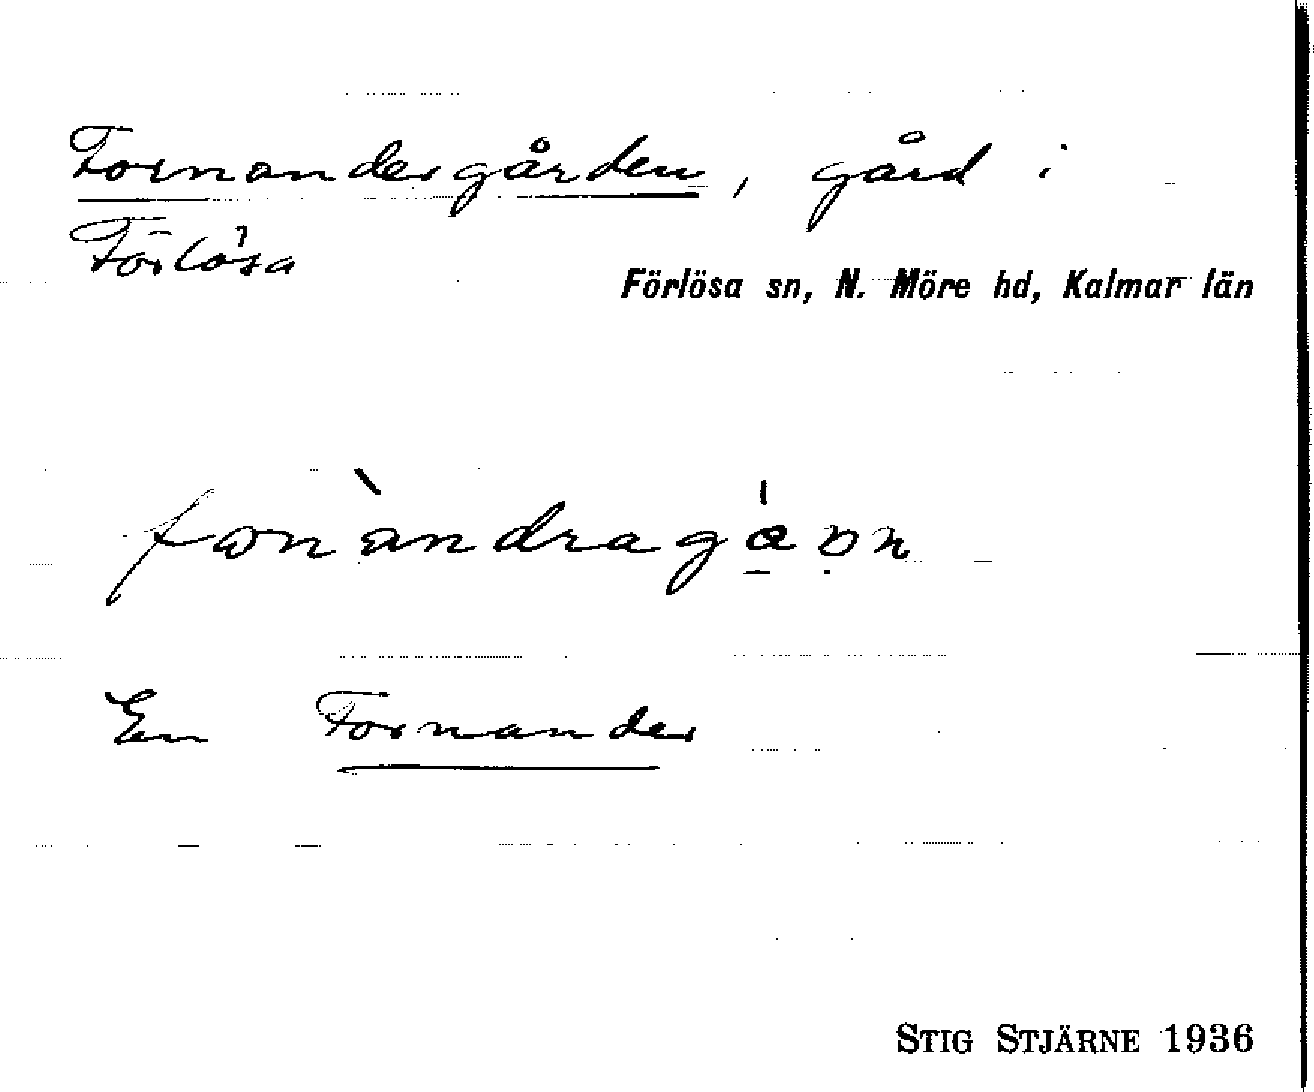 Fornandergården, gård i
Förlösa
Förlösa sn, N. Möre hd, Kalmar län
En Fornander
STIG STJÄRNE 1936